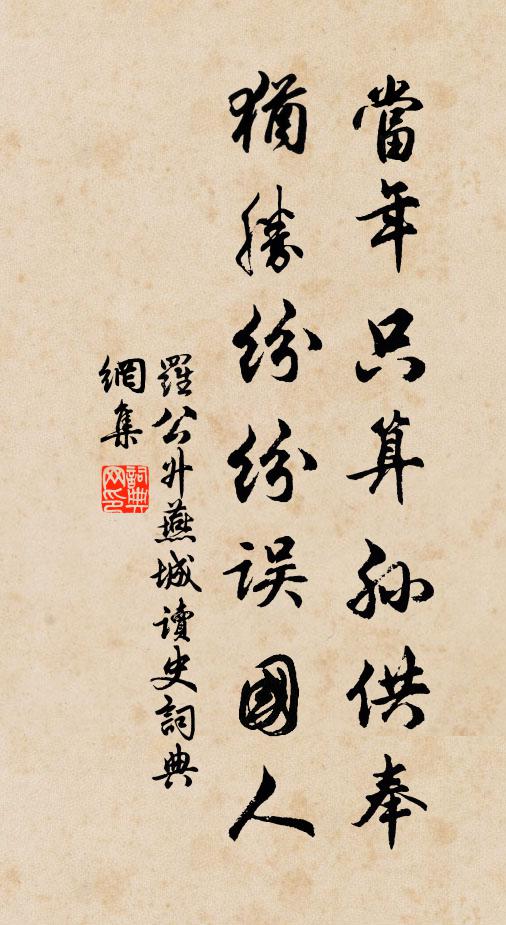 當年只算孫供奉
猶勝紛紛誤國人
羅公升燕城讀史詞典
網集
詞典網印